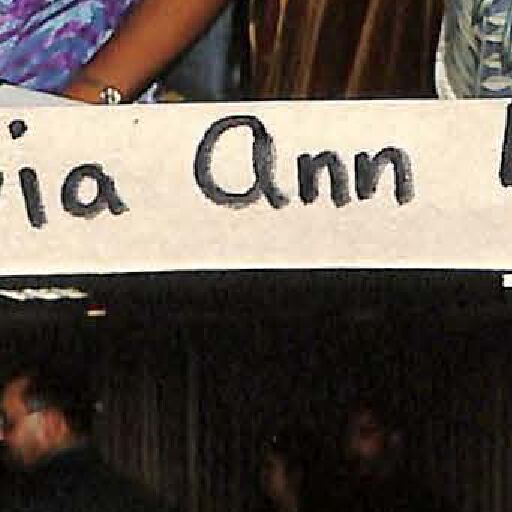 via Ann